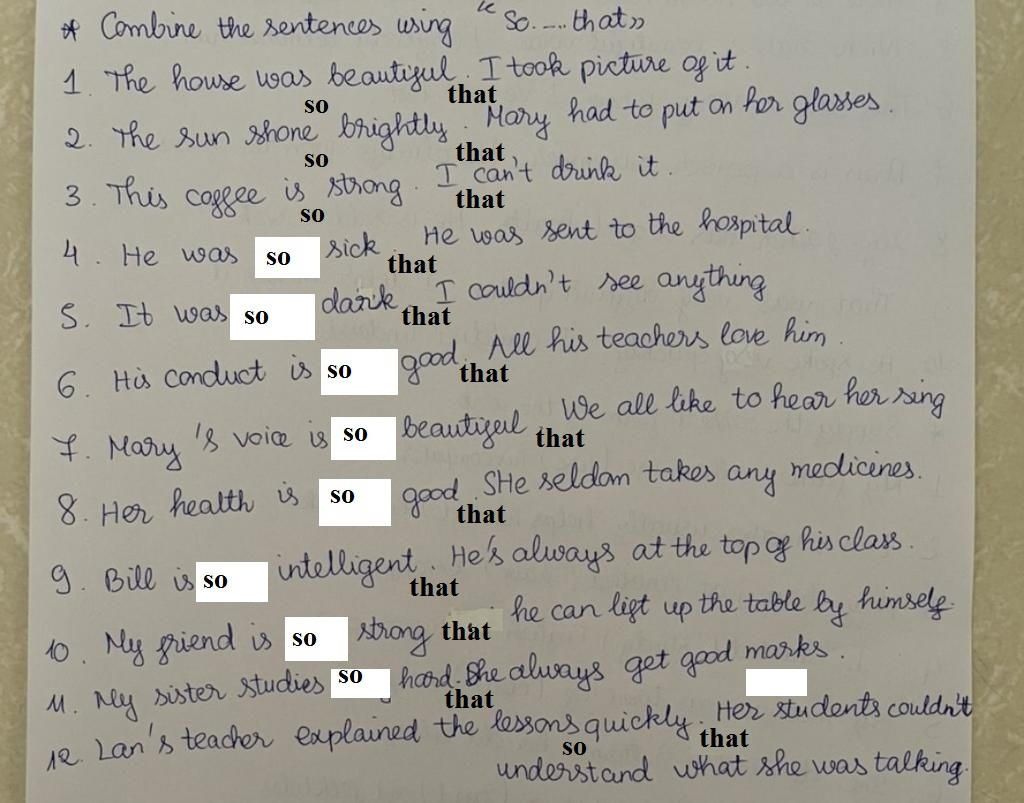 * Combine the sentences using "So.....that"
1. The house was beautiful. I took picture of it.
so that
2. The sun shone brightly. Mary had to put on her glasses.
so that
3. This coffee is strong. I can't drink it.
so that
4. He was so sick. that He was sent to the hospital.
5. It was so dark. that I couldn't see anything
6. His conduct is so good. that All his teachers love him.
7. Mary's voice is so beautiful. that We all like to hear her sing
8. Her health is so good. that SHe seldom takes any medicines.
9. Bill is so intelligent. that He's always at the top of his class.
10. My friend is so strong that he can lift up the table by himself.
11. My sister studies so hard. that She always get good marks.
12. Lan's teacher explained the lessons quickly. Her students couldn't
so that
understand what she was talking.